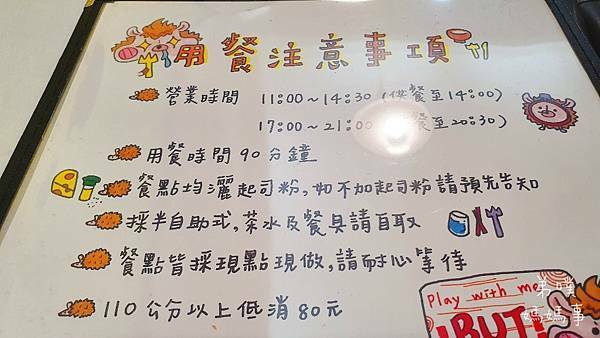 用餐注意事項
營業時間 11:00～14:30 (供餐至14:00)
17:00～21:00 餐至20:30)
用餐時間90分鐘
餐點均灑起司粉,如不加起司粉請預先告知
採半自助式,茶水及餐具請自取
餐點皆採現點現做,請耐心等待
110公分以上低消80元
Play with me
!BUT!
弟噗
媽媽事